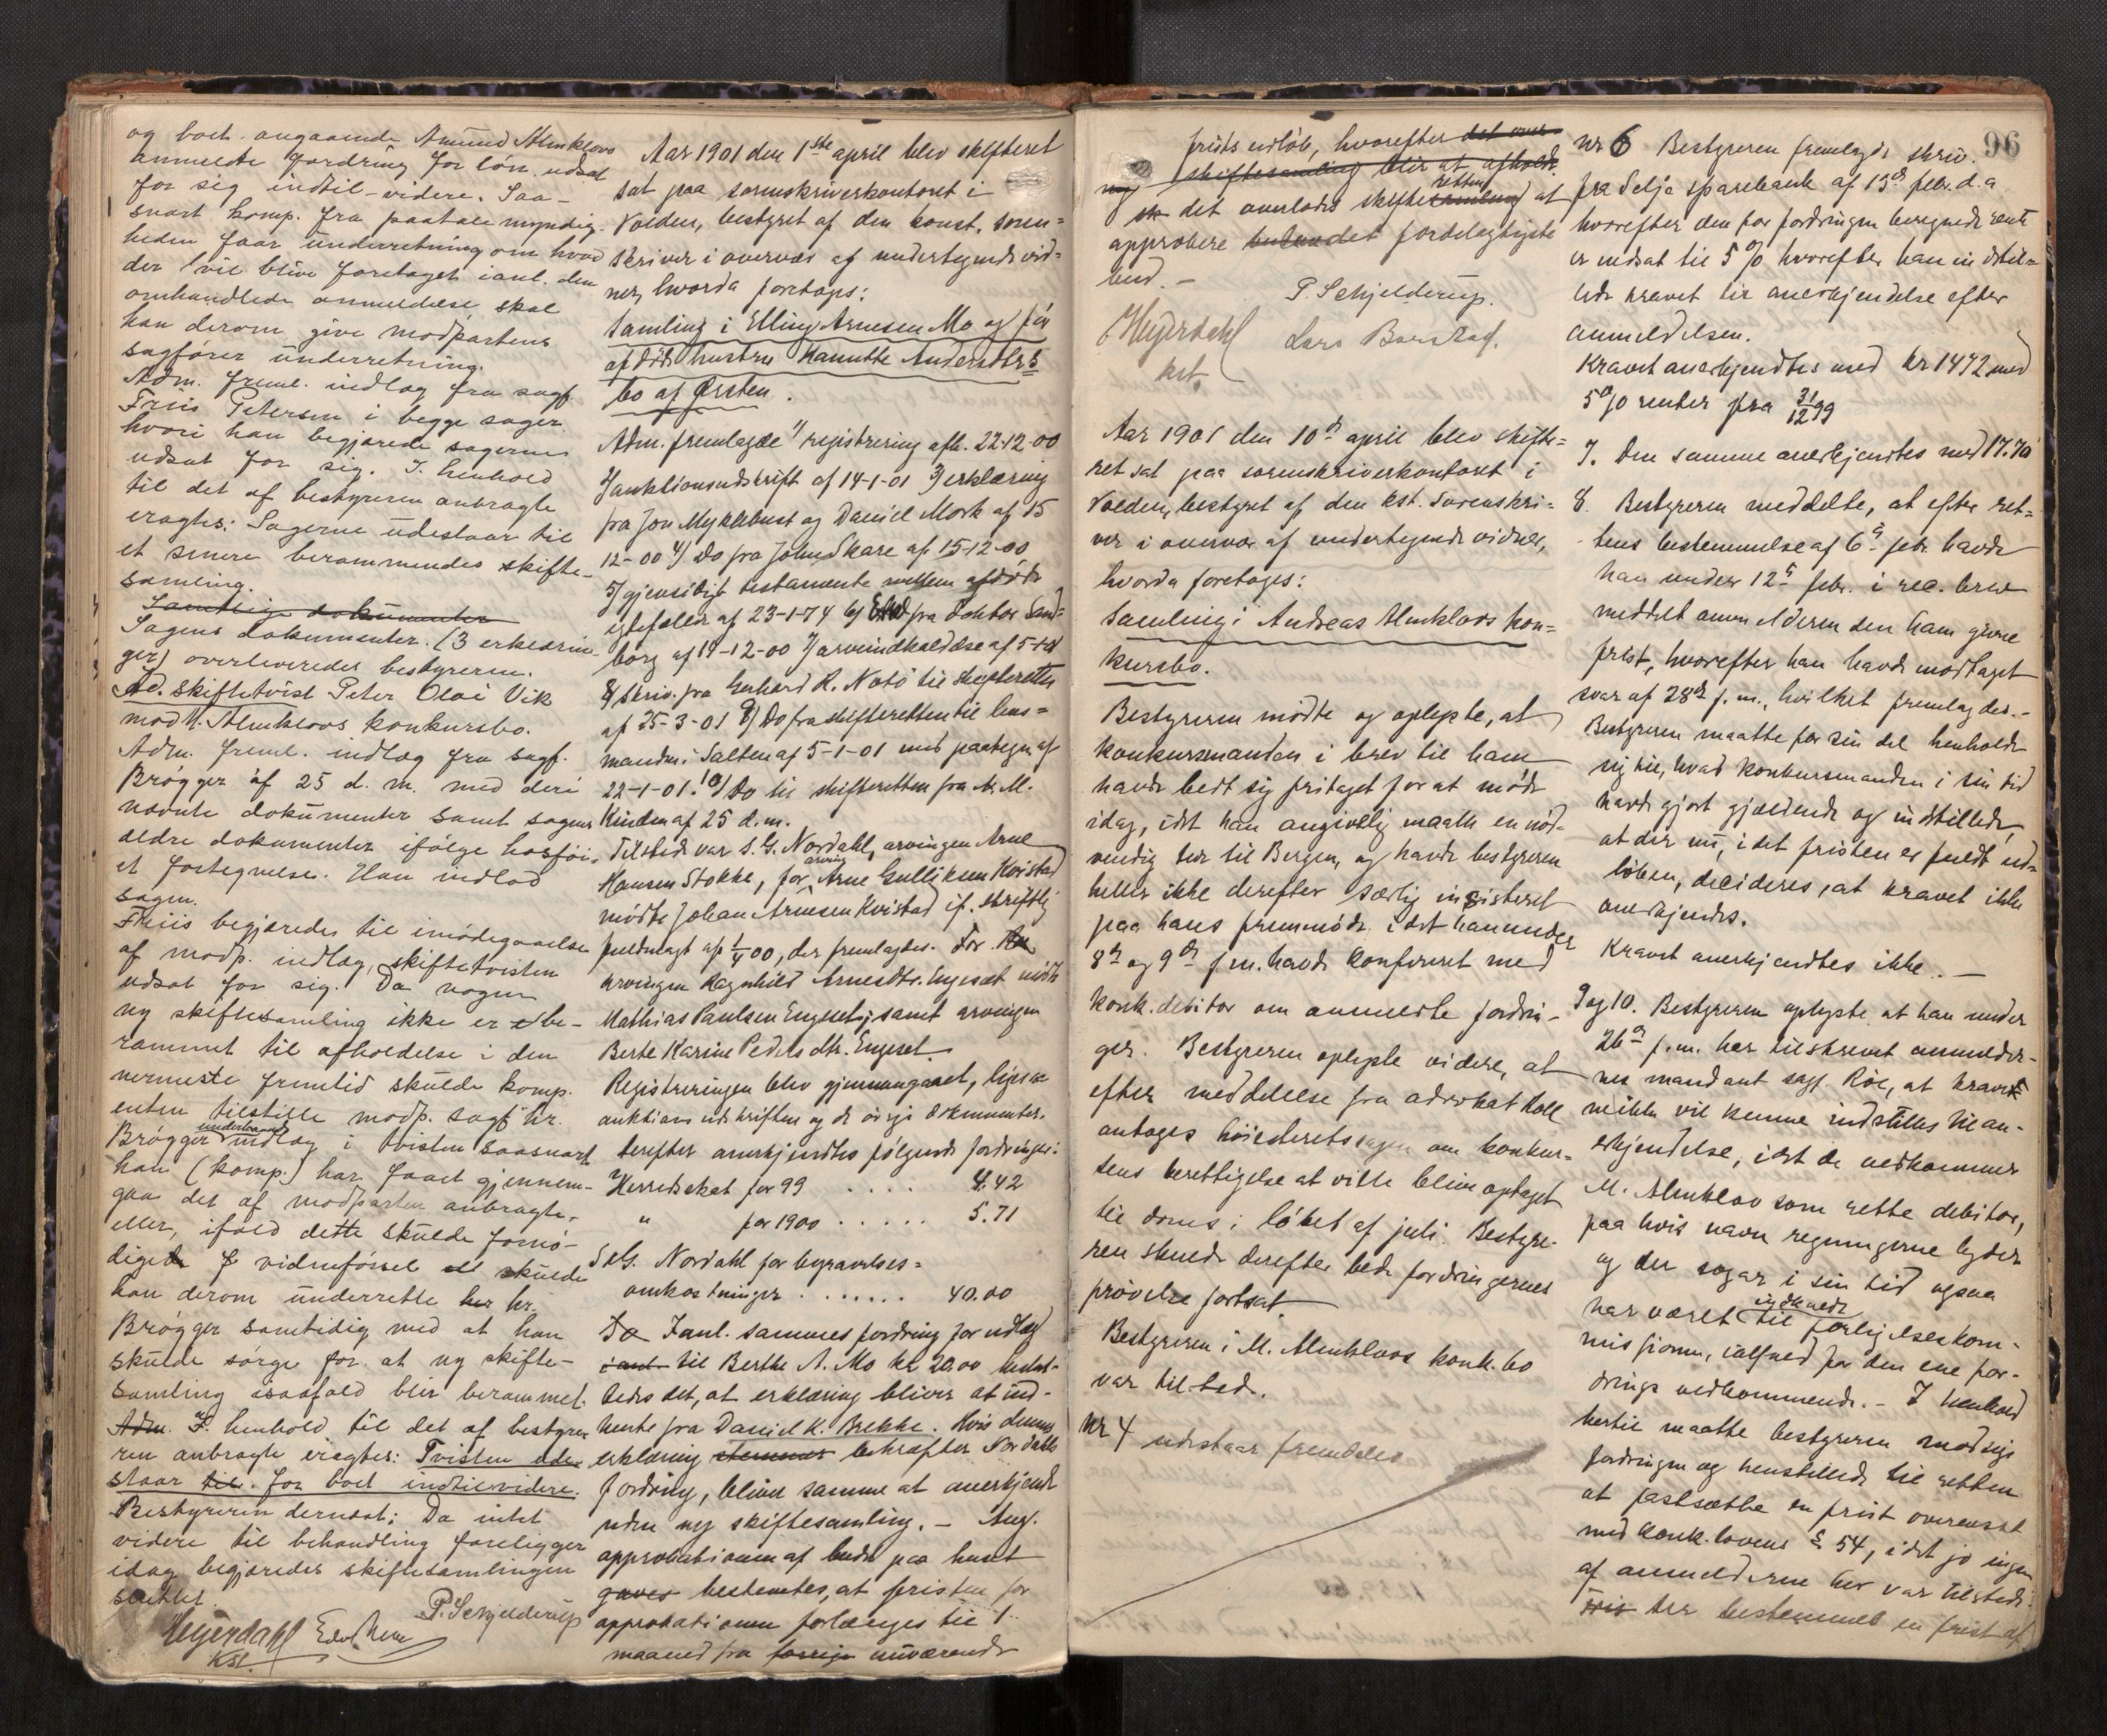 og boet angaaende Amund Almklovs
anmeldte fordring for løn udsat
for sig indtil-videre. Saa-
snart komp. fra paatalemyndig-
heden faar underretning om hvad
der vil blive foretaget ianl. den
omhandlede anmeldelse skal
han derom give modpartens
sagfører underretning.
Adm. freml. indlæg fra sagf
Friis Petersen i begge sager
hvori han begjærede sagernes
udsat for sig. I henhold
til det af bestyreren anbragte
eragtes: Sagerne udestaar til
et senere berammendes skifte-
samling.
Samtlige dokumenter
Sagens dokumenter (3 erklærin-
ger) overleveredes bestyreren.
Ad. skiftetvist Peter Olai Vik
mod M. Almklovs konkursbo.
Adm. freml. indlæg fra sagf.
Brøgger af 25 d. m. med deri
nævnte dokumenter samt sagens
ældre dokumenter ifølge hosføi-
et fortegnelse. Han indlod
sagen.
Friis begjæredes til imødegaaelse
af modp. indlæg, skiftetvisten
udsat for sig. Da nogen
ny skiftesamling ikke er be-
rammet til afholdelse i den
nermeste fremtid skulde komp.
enten tilstille modp. sagf hr.
Brøgger underhaanden indlæg i tvisten saasnart
han (komp.) har faaet gjennem-
gaa det af modparten anbragte,
eller, ifald dette skulde fornø-
diget vidneførsel skulde
han derom underrette hr.
Brøgger samtidig med at han
skulde sørge for at ny skifte-
samling isaafald blir berammet.
Adm. I henhold til det af bestyre-
ren anbragte eragtes: Tvisten ude-
staar til for boet indtilvidere.
Bestyreren dernæst: Da intet
videre til behandling foreligger
idag begjæredes skiftesamlingen
sluttet.
P. Schjelderup
Heyerdahl
kst.
Aar 1901 den 1ste april blev skifteret
sat paa sorenskriverkontoret i
Volden, bestyret af den konst. soren-
skriver i overvær af undertegnede vid-
ner, hvorda foretoges:
Samling i Elling Arnesen Mo og før
afdøde hustru Hanutte Andersdtrs
bo af Ørsten.
Adm. fremlagde 1) registrering afh. 22-12-00
2) auktionsudskrift af 14-1-01 3) erklæring
fra Jon Myklebust og Daniel Mork af 15
12-00 4) Do fra John Skare af 15-12-00
5) gjensidigt testamente mellem afdøde
egtefæller af 23-1-74 6) fra doktor Sand-
borg af 19-12-00 7) arveindkaldelse af
8) skriv. fra Gerhard R. Natø til skifteretten
af 25-3-01 9) Do fra skifteretten til lens-
manden i Salten af 5-1-01 med paategn. af
22-1-01. 10) Do til skifteretten fra
af 25 d.m.
Tilstede var S. G. Nordahl, arvingen Arne
Hansen Stokke, for arving Arne Gulliksen Kvistad
mødte Johan Arnesen Kvistad if. skriftlig
fuldmagt af 1/4 00, der fremlagdes. For
arvingen Ragnhild Arnesdtr. Engeset mødte
Mathias Paulsen Engeset, samt arvingen
Berte Karine Peders dtr. Engeset.
Registreringen blev gjennemgaaet, ligesaa
auktions udskriften og de øvrige dokumenter.
Derefter anerkjendtes følgende fordringer:
Herredsskat for 99 . . . . . 4.42
" for 1900 . . . . . 5.71
S. G. Nordahl for begravelses-
omkostninger . . . . . . . 40.00
Do Ianl. sammes fordring for udlæg
ianl. til Berthe A. Mo kr 20.00 beslut-
tedes det, at erklæring bliver at ind-
hente fra Daniel K. Brekke. Hvis denne
erklæring stemmer bekræfter Nordahls
fordring, bliver samme at anerkjende
uden ny skiftesamling. – Ang.
approbationen af budet paa huset
gaves bestemtes, at fristen for
approbationen forlænges til 1
maaned fra forrige nuværende
frists udløb, hvorefter det over
ny skiftesamling blir at afholde.
det overlades skifteretten samling at
approbere budet fordelagtigste
bud. –
P. Schjelderup.
Heyerdahl
kst.
Aar 1901 den 10de april blev skifte-
ret sat paa sorenskriverkontoret i
Volden, bestyret af den kst. Sorenskri-
ver i overvær af undertegnede vidner,
hvorda foretoges:
Samling i Andreas Almklovs kon-
kursbo.
Bestyreren mødte og oplyste, at
konkursmanden i brev til ham
havde bedt sig fritaget for at møde
idag, idet han angivelig maatte en nød-
vendig tur til Bergen, og havde bestyreren
heller ikke derefter særlig insisteret
paa hans fremmøde idet han under
8de og 9de f.m. havde konfereret med
konk. debitor om anmeldte fordrin-
ger. Bestyreren oplyste videre, at
efter meddelelse fra advokat Roll
antages høiesteretssagen om konkur-
sens berettigelse at ville blive optaget
til doms i løbet af juli. Bestyre-
ren skulde derefter bede fordringernes
prøvelse fortsat
Bestyreren i M. Almklovs konk. bo
var tilstede.
Nr 4 udestaar fremdeles
96
Nr 6 Bestyreren fremlagde skriv.
fra Selje sparebank af 13de febr. d.a
hvorefter den for fordringen beregnede rente
er nedsat til 5 % hvorefter han indstil-
lede kravet til anerkjendelse efter
anmeldelsen.
Kravet anerkjendtes med kr 1472 med
5 % renter fra 31/12 99
7. Den samme anerkjendtes med 17.70
8. Bestyreren meddelte, at efter ret-
tens bestemmelse af 6te febr. havde
han under 12te febr. i rec. brev
meddelt anmelderen den ham givne
frist, hvorefter han havde modtaget
svar af 28de f.m., hvilket fremlagdes.–
Bestyreren maatte for sin del henholde
sig til, hvad konkursmanden i sin tid
havde gjort gjældende og indstillede,
at der nu, idet fristen er fuldt ud-
løben, decideres, at kravet ikke
anerkjendes.
Kravet anerkjendtes ikke. –
9 og 10. Bestyreren oplyste at han under
26de f.m. har tilskrevet anmelder-
nes mandant sagf. Röe, at kravene
ikke vil kunne indstilles til an-
erkjendelse, idet de vedkommer
M. Almklov som rette debitor,
paa hvis navn regningerne lyder
og der sogar i sin tid ogsaa
har været indkaldt til forligelseskom-
missionen, ialfald for den ene for-
drings vedkommende. – I henhold
hertil maatte bestyreren modsige
fordringen og henstillede til retten
at fastsætte en frist overensst
med konk. lovens § 54, idet jo ingen
af anmelderne her var tilstede.
Der bestemmes en frist af